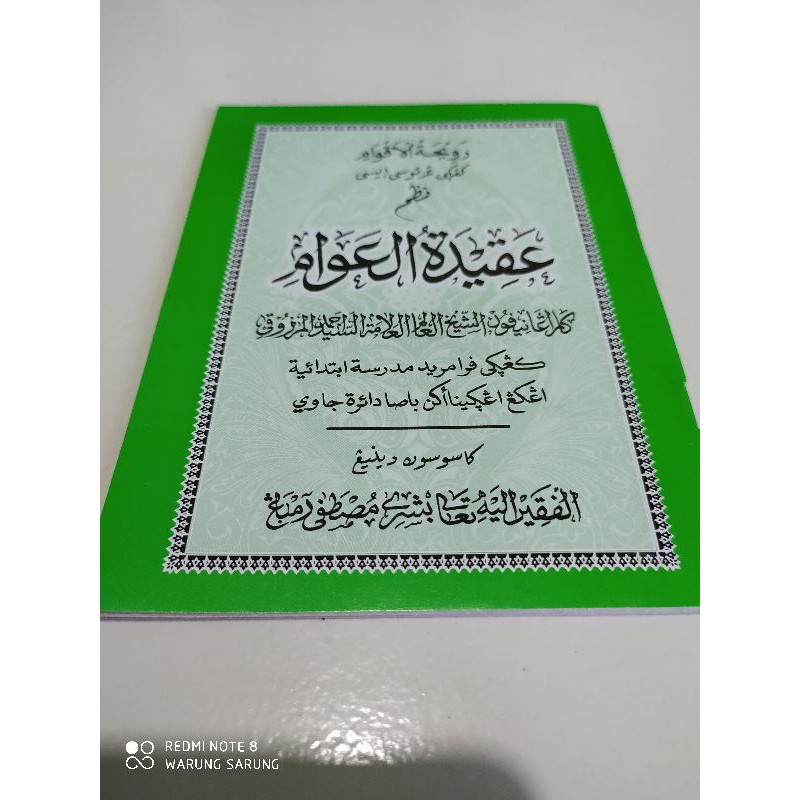 رويحة الاقوام
كڠكى غرتوسى ايسى
نظم
عَقِيدَةُ العَوَامِ
كاراڠانيفون الشيخ العالم العلامة السيد احمد المرزوقي
كڠكى فوا مريد مدرسة ابتدائية
اڠكڠ اڠڮينا أكن باصا دائرة جاوي
كاسوسون دينيڠ
الفقير اليه تعالى بشري مصطفى رمباڠ
REDMI NOTE 8
WARUNG SARUNG